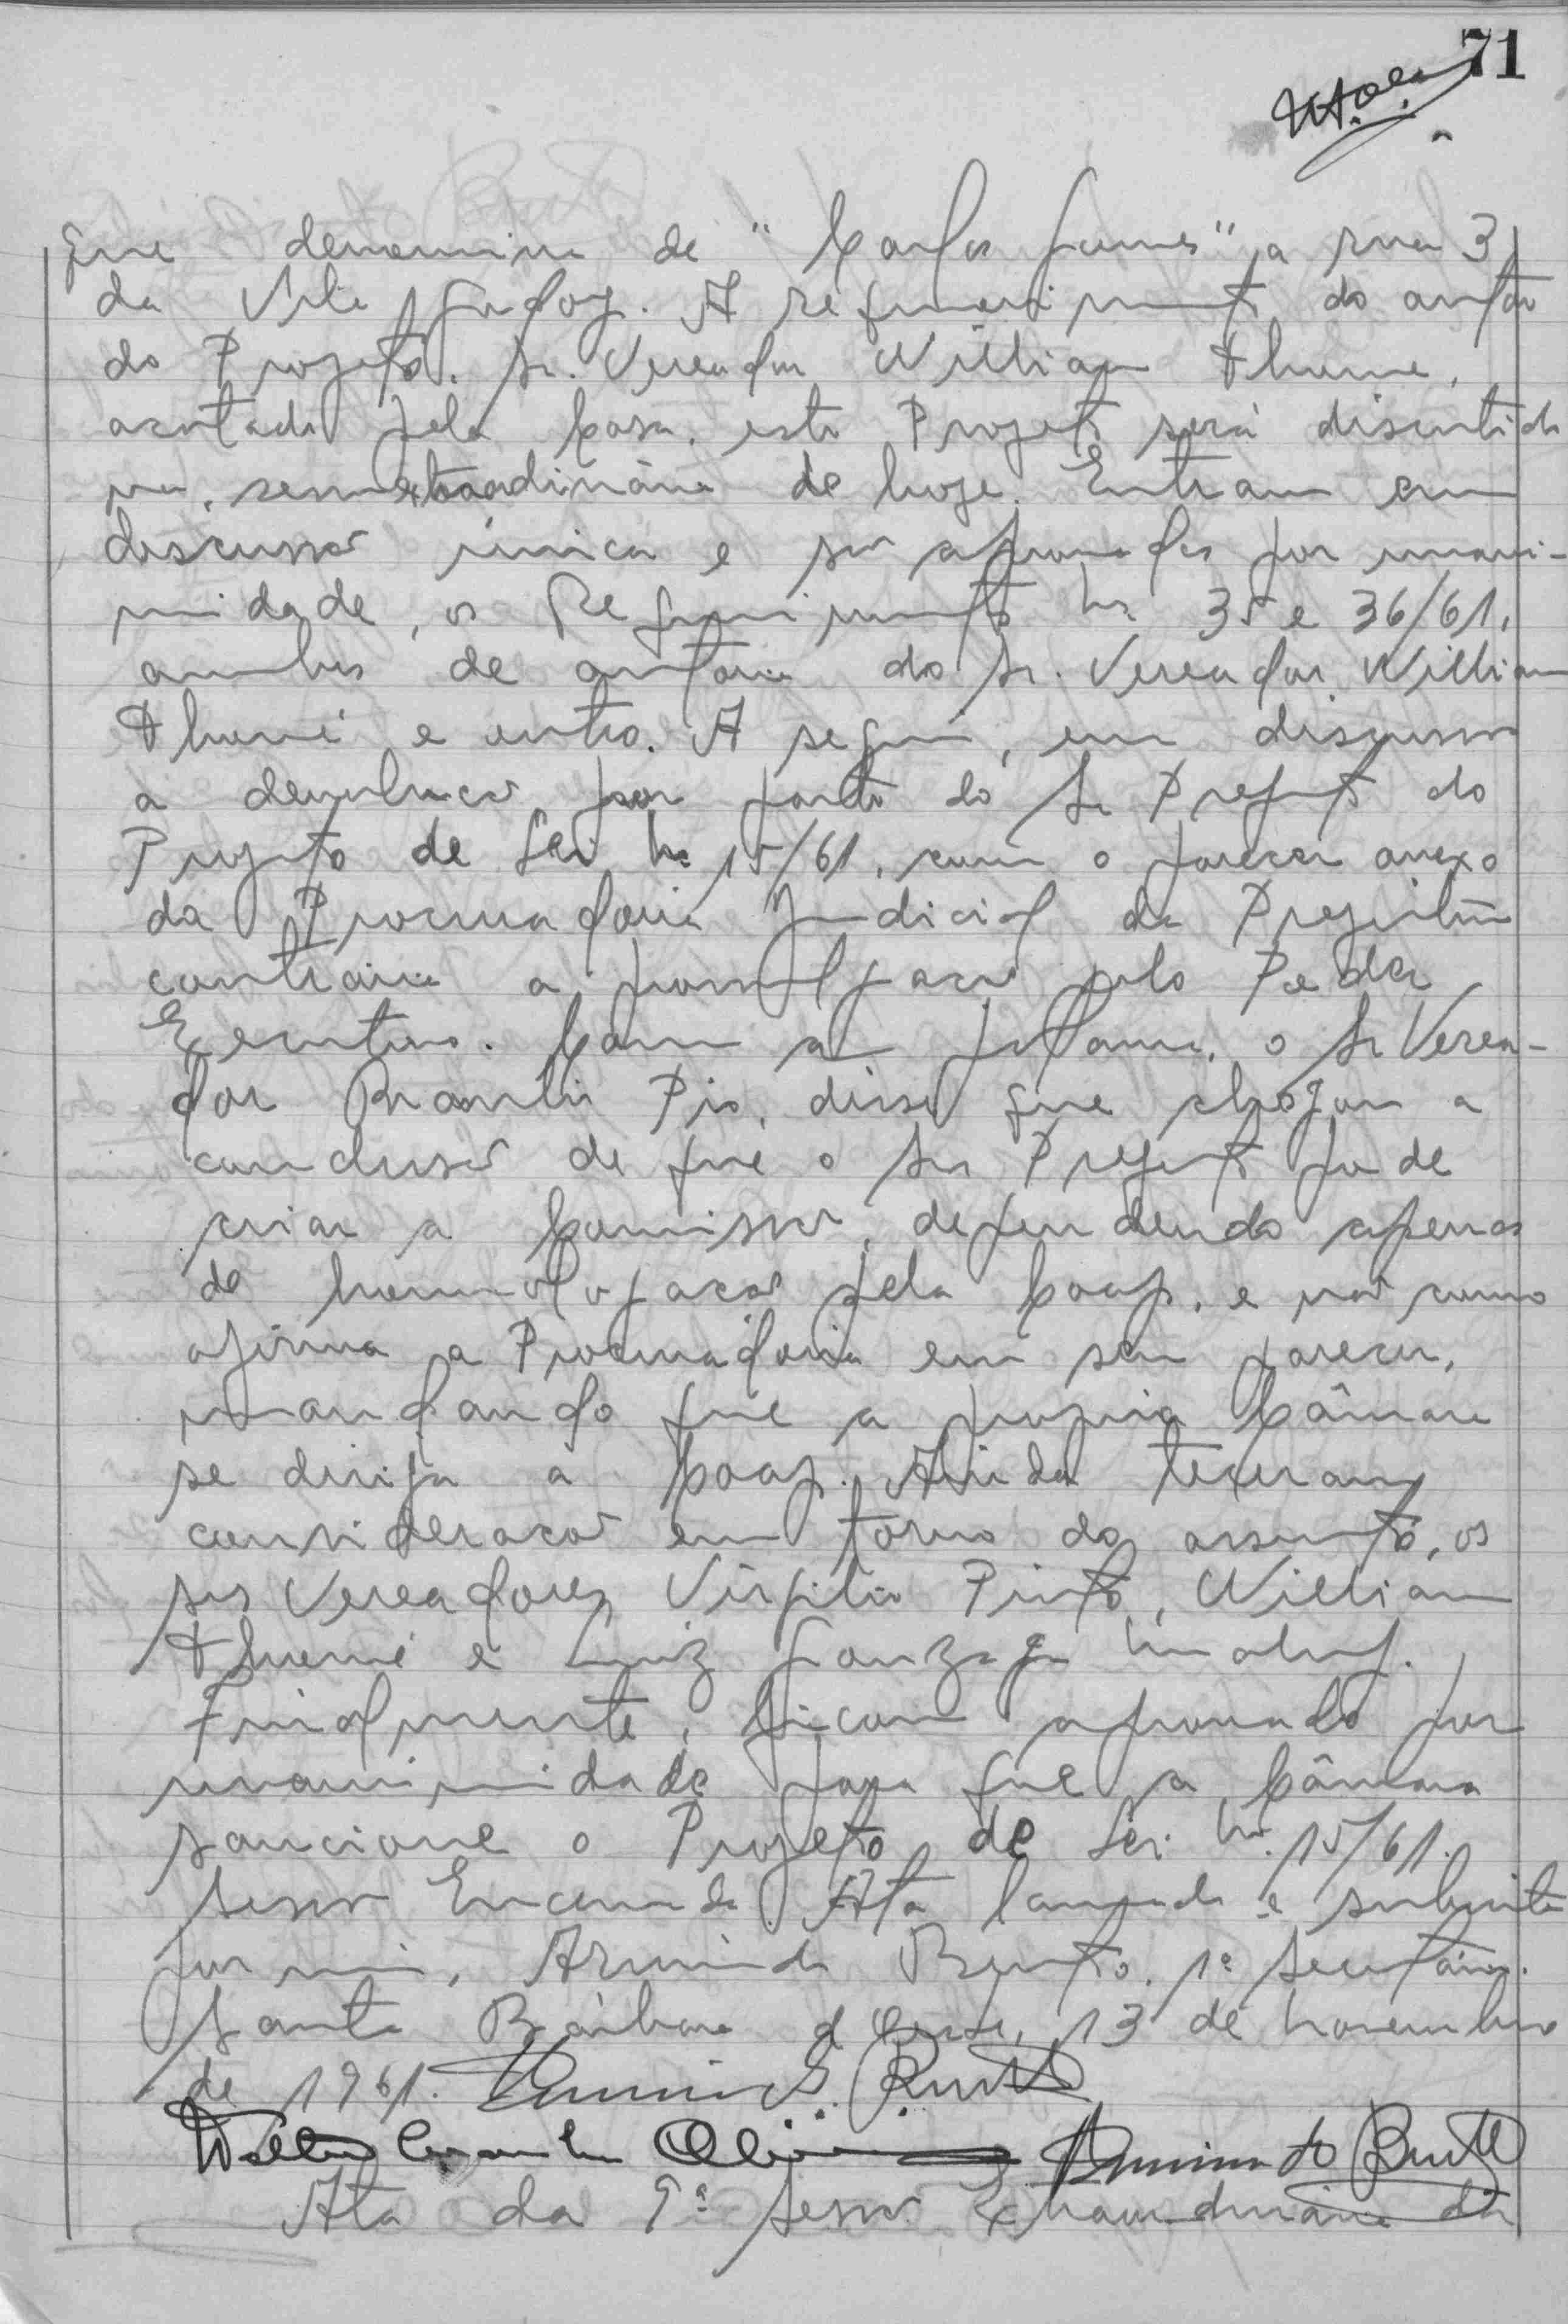 71
que denomina de "Carlos Gomes" a rua 3
da Vila Godoy. A requerimento do autor
do Projeto. Sr. Vereador William Thume,
acatado pela Casa, este Projeto será discutido
na, sessão extraordinária de hoje. Entram em
discussão única e são aprovados por unani-
midade, os Requerimento ns 35 e 36/61,
ambos de autoria do Sr. Vereador William
Thumé e outro. A seguir, em discussão
a devolucão, por parte do Sr Prefeito do
Projeto de Lei nº 15/61, com o parecer anexo
da Procuradoria Judicial da Prefeitura
contrária a promulgacão pelo Poder
Executivo. Com a palavra, o Sr Verea-
dor Braulio Pio, disse que chegou a
conclusão de que o Sr Prefeito pode
criar a Comissão, dependendo apenas
de homologacão pela Coap, e não como
afirma a Procuradoria em seu parecer,
mandando que a propria Câmara
se dirija a Coap. Ainda teceram
consideracão em torno do assunto, os
srs Vereadores Virgilio Pinto, William
Thumé e Luiz Gonzaga
Finalmente, ficou aprovado por
unanimidade para que a Câmara
sancione o Projeto de Lei nº 15/61.
Sessão Encerrada. Ata lavrada e subscrita
por mim, Armindo Brutto, 1º Secretário.
Santa Bárbara d'Oeste, 13 de novembro
de 1961.
Ata da 9ª Sessão Extraordinária da